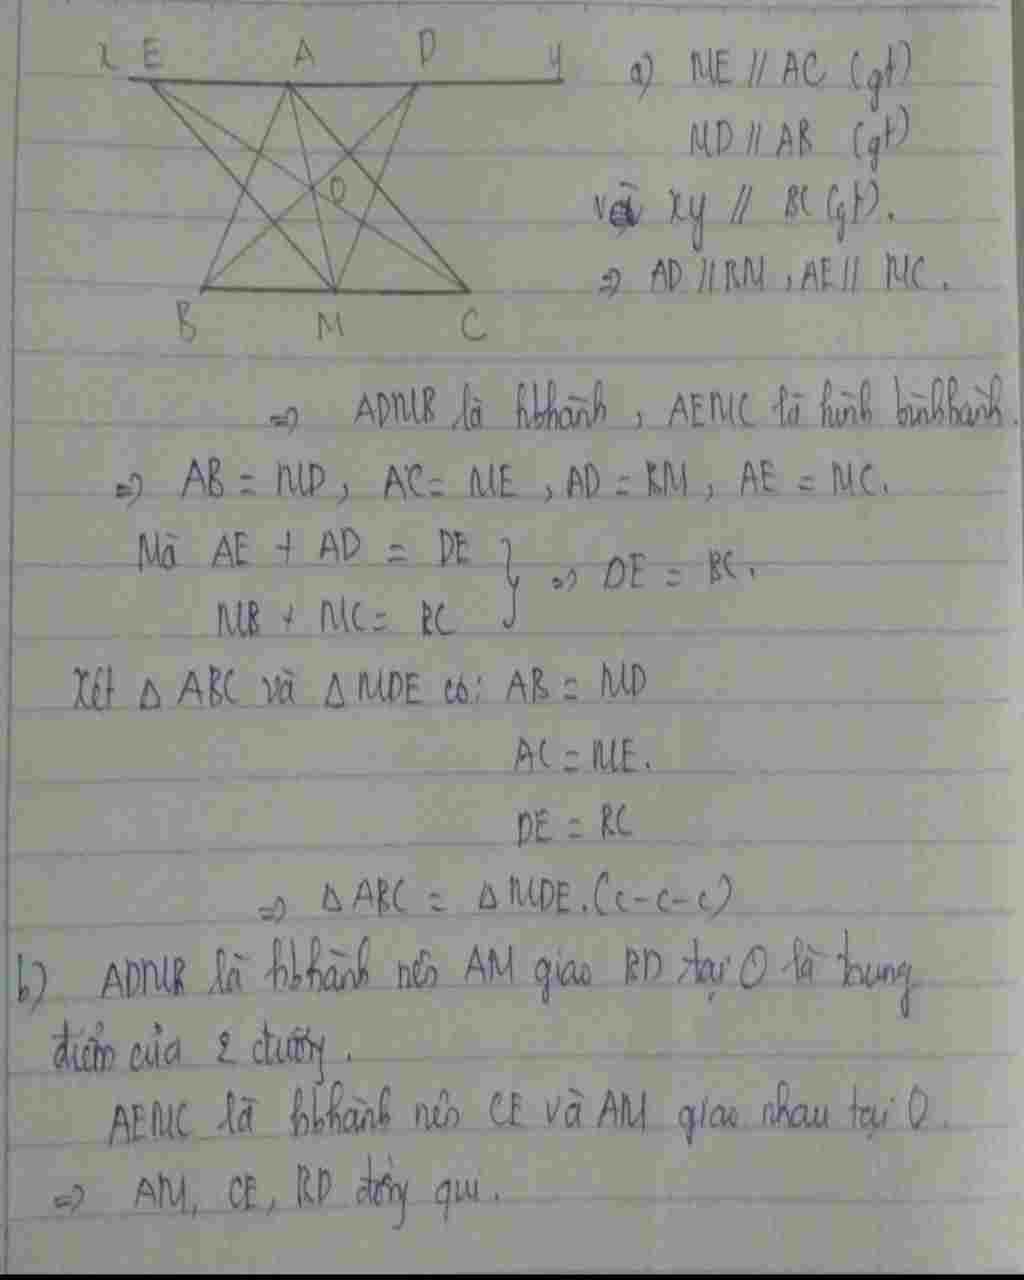 x E A D y
O
B M C
a) ME // AC (gt)
MD // AB (gt)
và xy // BC (gt).
=> AD // BM, AE // MC.
=> ADMB là hbhành, AEMC là hình bình hành.
=> AB = MD, AC = ME, AD = BM, AE = MC.
Mà AE + AD = DE } => DE = BC.
MB + MC = BC
Xét Δ ABC và Δ MDE có: AB = MD
AC = ME.
DE = BC
=> Δ ABC = Δ MDE. (c-c-c)
b) ADMB là hbhành nên AM giao BD tại O là trung
điểm của 2 đường.
AEMC là hbhành nên CE và AM giao nhau tại O.
=> AM, CE, BD đồng qui.